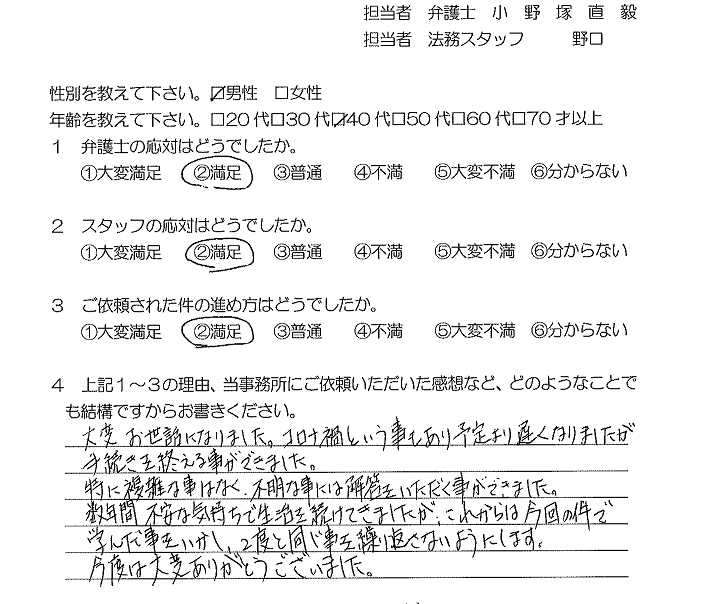 担当者 弁護士 小 野 塚 直 毅
担当者 法務スタッフ 野口
性別を教えて下さい。☑男性 □女性
年齢を教えて下さい。□20代□30代☑40代□50代□60代□70才以上
1 弁護士の応対はどうでしたか。
①大変満足 ②満足 ③普通 ④不満 ⑤大変不満 ⑥分からない
2 スタッフの応対はどうでしたか。
①大変満足 ②満足 ③普通 ④不満 ⑤大変不満 ⑥分からない
3 ご依頼された件の進め方はどうでしたか。
①大変満足 ②満足 ③普通 ④不満 ⑤大変不満 ⑥分からない
4 上記1~3の理由、当事務所にご依頼いただいた感想など、どのようなことで
も結構ですからお書きください。
大変 お世話になりました。コロナ禍という事もあり予定より遅くなりましたが
手続きを終える事ができました。
特に複雑な事はなく、不明な事には解答をいただく事ができました。
数年間 不安な気持ちで生活を続けてきましたが、これからは今回の件で
学んだ事をいかし、2度と同じ事を繰り返さないようにします。
今度は大変ありがとうございました。